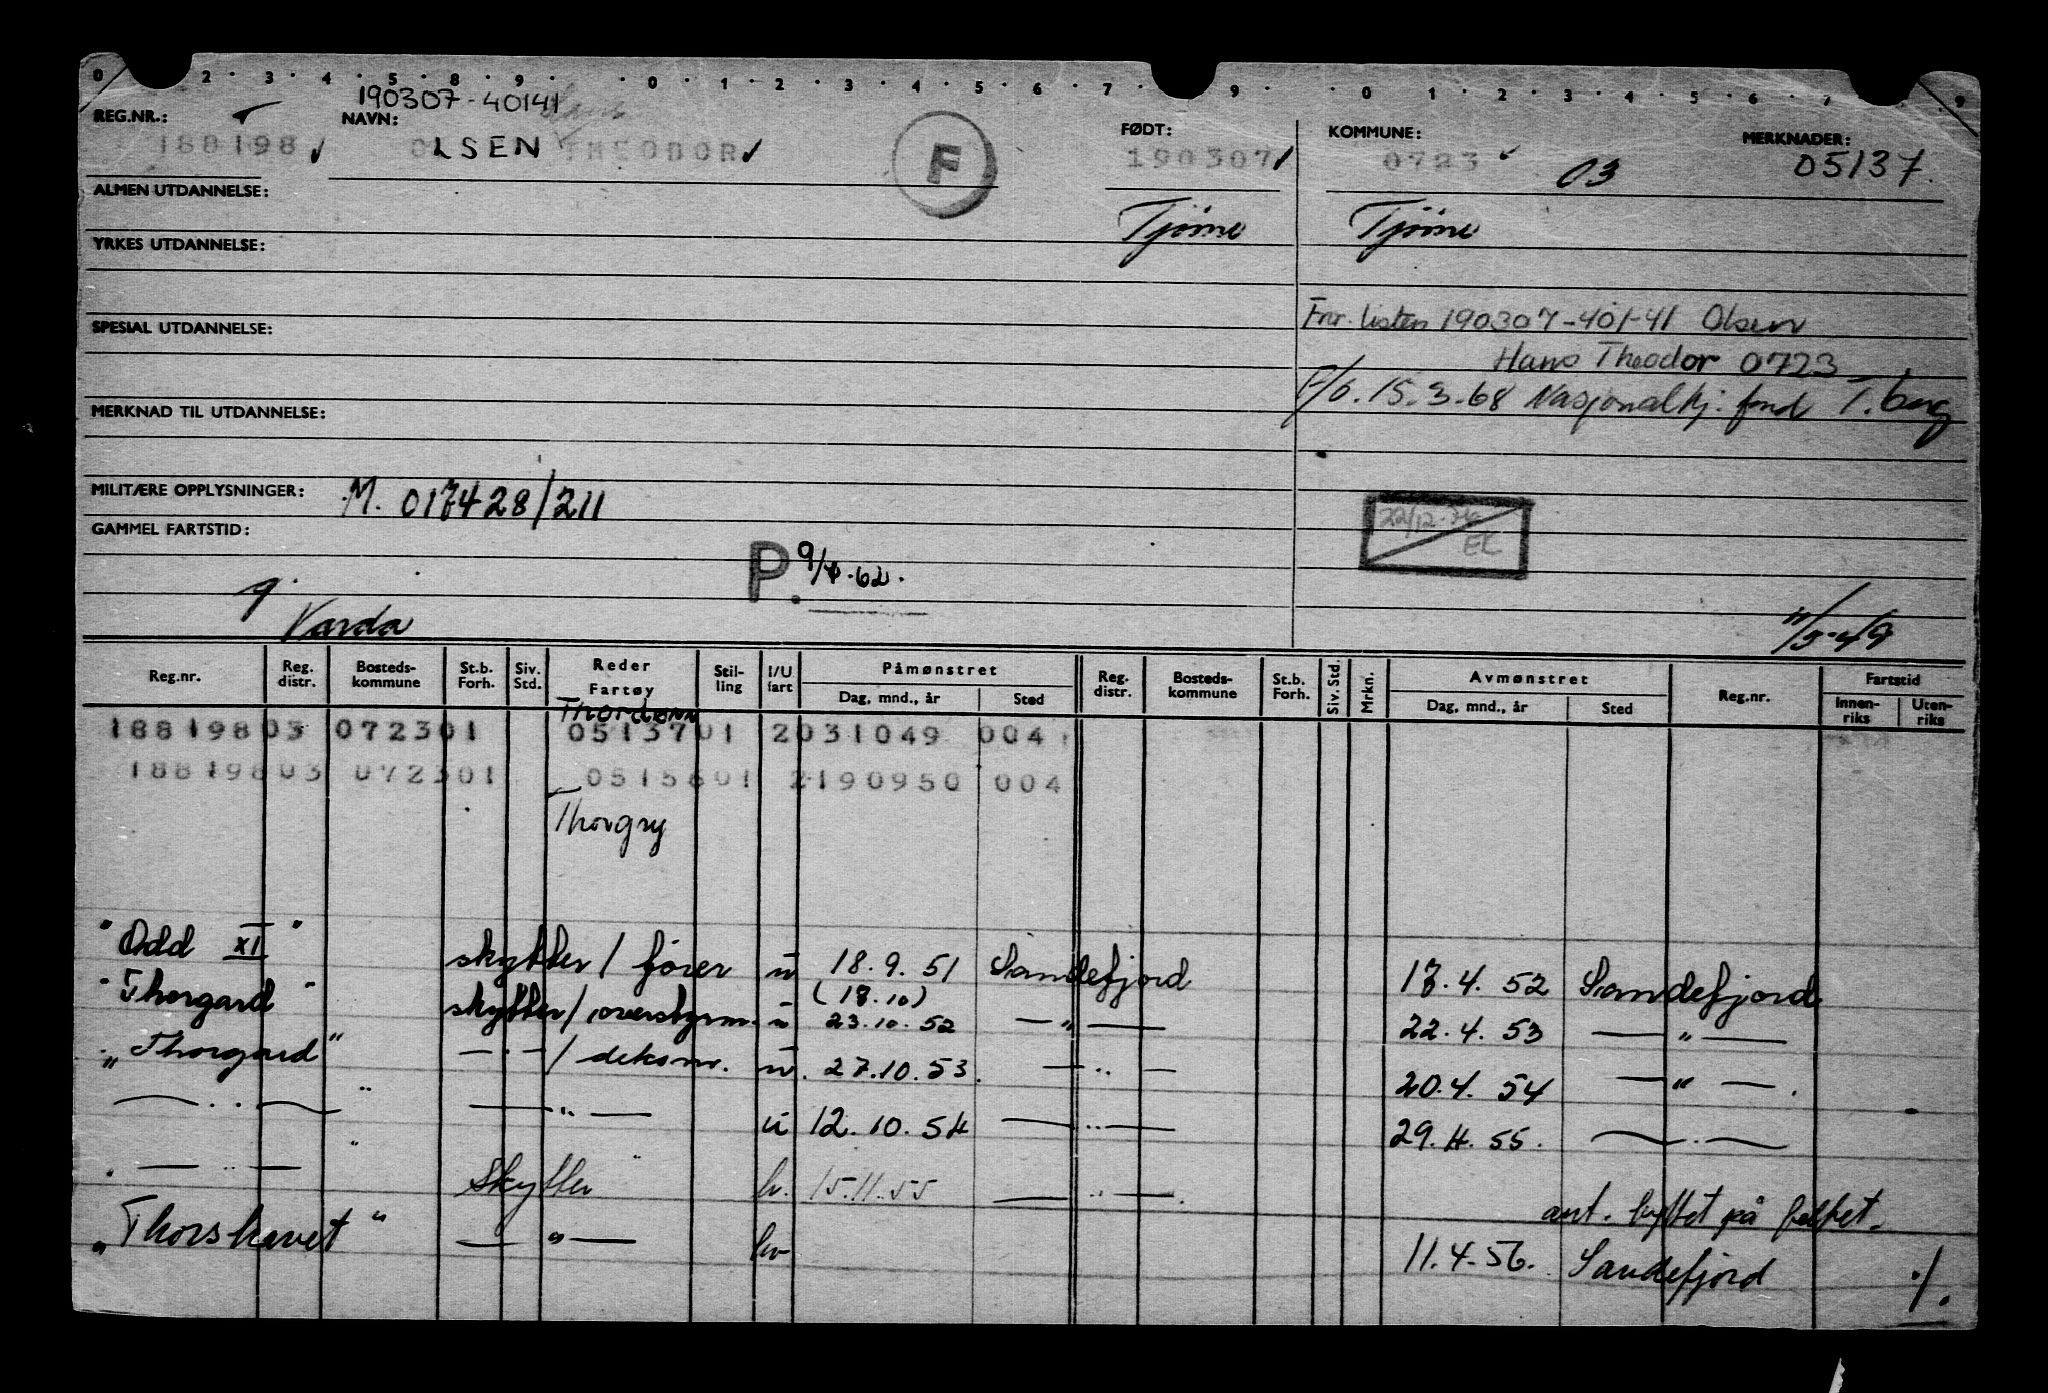 0 2 · 3 · 4 · 5 · 8 · 9 · 0 · 1 · 2 · 3 · 4 · 5 · 6 · 7 · 9 · 0 1 · 2 · 3 · 4 · 5 · 6 · 7 9
190307-40141 Hans
REG.NR.: NAVN: FØDT: KOMMUNE: MERKNADER:
188198 OLSEN THEODOR F 190307 0723 03 05137
ALMEN UTDANNELSE:
Tjøme Tjøme
YRKES UTDANNELSE:
Fnr. listen 190307-401-41 Olsen
SPESIAL UTDANNELSE:
Hans Theodor 0723
P/b. 15-3-68 Nasjonalhj. fond T.berg
MERKNAD TIL UTDANNELSE:
MILITÆRE OPPLYSNINGER: M. 017428/211
22/12 EL
GAMMEL FARTSTID:
P. 9/4.62.
Varda 11/5-49
Reg.nr. Reg. distr. Bosteds-kommune St.b. Forh. Siv. Std. Reder Fartøy Stil-ling I/U fart Påmønstret Dag, mnd., år Sted Reg. distr. Bosteds-kommune St.b. Forh. Siv. Std. Mrkn. Avmønstret Dag, mnd., år Sted Reg.nr. Fartstid Innen-riks Uten-riks
Thordønn
188198 03 0723 01 05137 01 2 031049 004
188198 03 0723 01 05156 01 2 190950 004
Thorgry
"Odd XI" skytter / fører u 18.9.51 Sandefjord 17.4.52 Sandefjord
(18.10)
"Thorgard" skytter / overstyrm. u 23.10.52 — " — 22.4.53 — " —
"Thorgard" — " — / dekksm. u. 27.10.53. — " — 20.4.54 — " — .
— " — " — " — u 12.10.54 — " — 29.4.55. — " —
" — " — " Skytter hv. 15.11.55 — " — . ant. byttet på feltet.
"Thorshavet" — " — hv 11.4.56. Sandefjord ./.